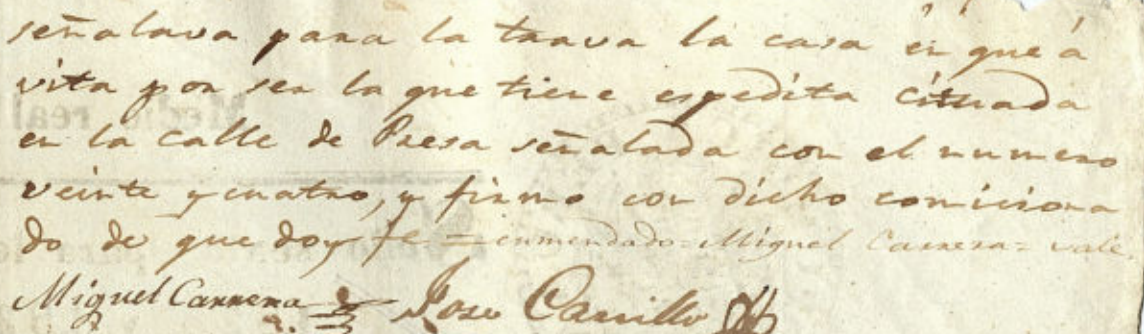 señalava para la trava la casa en que á
vita por ser la que tiene espedita cituada
en la calle de Presa señalada con el numero
veinte y cuatro, y firmo con dicho comiciona
do de que doy fe = enmendado = Miguel Carrera = vale
Miguel Carrera Jose Carrillo